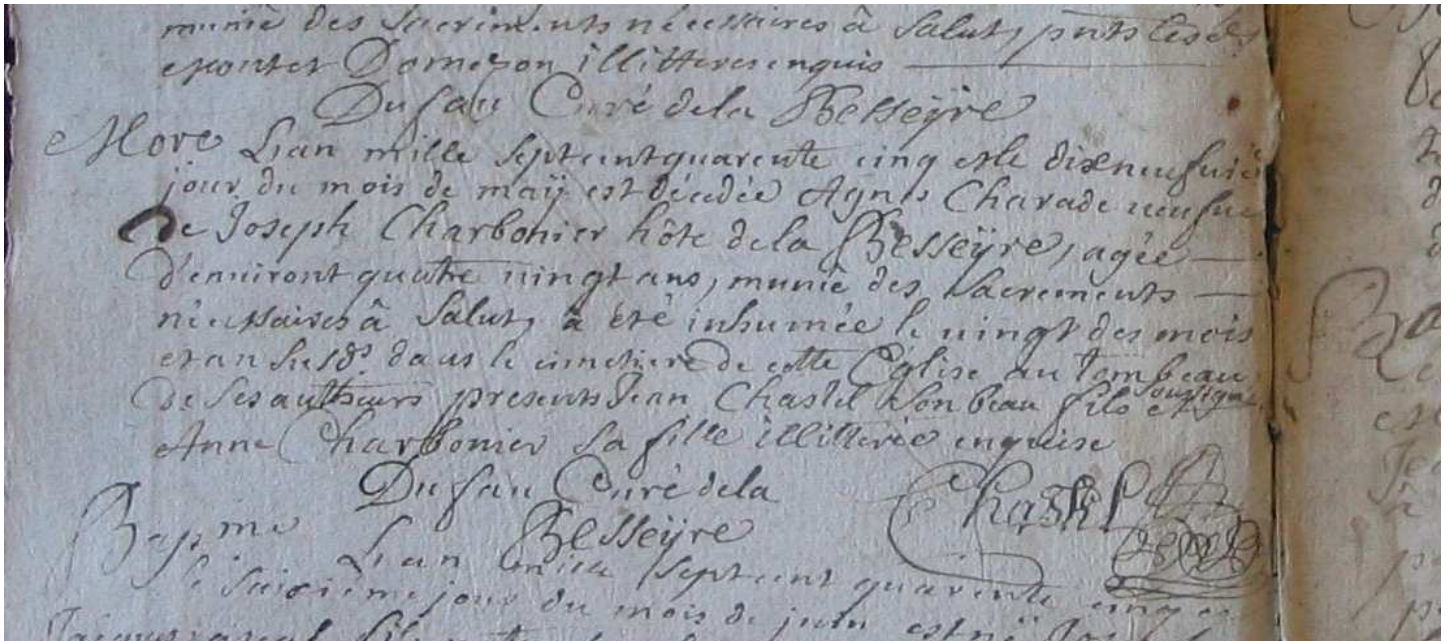 munie des sacrements nécessaires à salut, pnts les des
Domezon illitteres enquis
Dufau Curé dela Besseÿre
Mort L'an mille septcentquarente cinq et le dixneufvie
jour du mois de maÿ est décédée Agnes Charade veufve
De Joseph Charbonier hôte dela Besseÿre, agée
d'environt quatre vingt ans, munie des Sacrements
nécessaires à Salut, à été inhumée le vingt des mois
et an susds. dans le cimetiere de cette Eglise au tombeau
De ses autheurs presents Jean Chastel son beau fils et soussigne
Anne Charbonier sa fille illitterée enquise
Dufau Curé dela
Besseÿre
Chastel
Bapme L'an mil septcent quarente cinq et
le jour du mois de juin est né